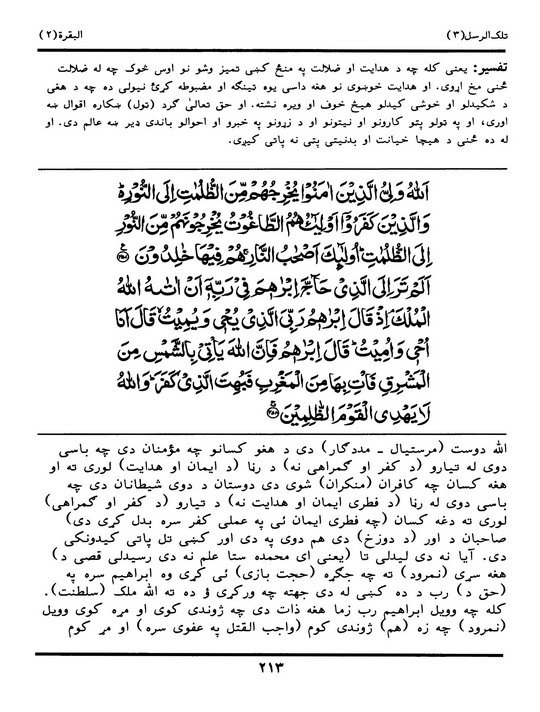 تلک الرسل(۳)
البقرة(۲)
تفسیر: یعنی کله چه د هدایت او ضلالت په منځ کښی تمیز وشو نو اوس څوک چه له ضلالت
څنی مخ اړوی. او هدایت خوښوی نو هغه داسی یوه ټینګه او مضبوطه کړئ نیولی ده چه د هغی
د شکیدلو او خوشی کیدلو هیڅ خوف او ویره نشته. او حق تعالیٰ ګرد (ټول) ښکاره اقوال ښه
اوری، او په ټولو پټو کارونو او نیتونو او د زړونو په خبرو او احوالو باندی ډیر ښه عالم دی. او
له ده څنی د هیچا خیانت او بدنیتی پټی نه پاتی کیږی.
اَللهُ وَلِيُّ الَّذِيْنَ اٰمَنُوْا يُخْرِجُهُمْ مِّنَ الظُّلُمٰتِ اِلَى النُّوْرِ ۬ؕ
وَالَّذِيْنَ كَفَرُوْٓا اَوْلِيٰٓـُٔهُمُ الطَّاغُوْتُ يُخْرِجُوْنَهُمْ مِّنَ النُّوْرِ
اِلَى الظُّلُمٰتِ ؕ اُولٰٓئِكَ اَصْحٰبُ النَّارِ ۚ هُمْ فِيْهَا خٰلِدُوْنَ
اَلَمْ تَرَ اِلَى الَّذِيْ حَآجَّ اِبْرٰهٖمَ فِيْ رَبِّهٖٓ اَنْ اٰتٰىهُ اللهُ
الْمُلْكَ ۘ اِذْ قَالَ اِبْرٰهٖمُ رَبِّيَ الَّذِيْ يُحْيٖ وَيُمِيْتُ ۙ قَالَ اَنَا
اُحْيٖ وَاُمِيْتُ ؕ قَالَ اِبْرٰهٖمُ فَاِنَّ اللهَ يَاْتِيْ بِالشَّمْسِ مِنَ
الْمَشْرِقِ فَاْتِ بِهَا مِنَ الْمَغْرِبِ فَبُهِتَ الَّذِيْ كَفَرَ ؕ وَاللهُ
لَا يَهْدِي الْقَوْمَ الظّٰلِمِيْنَ ۝۲۵۸
الله دوست (مرستیال ـ مددګار) دی د هغو کسانو چه مؤمنان دی چه باسی
دوی له تیارو (د کفر او ګمراهی نه) د رڼا (د ایمان او هدایت) لوری ته او
هغه کسان چه کافران (منکران) شوی دی دوستان د دوی شیطانان دی چه
باسی دوی له رڼا (د فطری ایمان او هدایت نه) د تیارو (د کفر او ګمراهی)
لوری ته دغه کسان (چه فطری ایمان ئی په عملی کفر سره بدل کړی دی)
صاحبان د اور (د دوزخ) دی هم دوی په دی اور کښی تل پاتی کیدونکی
دی. آیا نه دی لیدلی تا (یعنی ای محمده ستا علم نه دی رسیدلی قصی د)
هغه سړی (نمرود) ته چه جګړه (حجت بازی) ئی کړی وه ابراهیم سره په
(حق د) رب د ده کښی له دی جهته چه ورکړی ؤ ده ته الله ملک (سلطنت).
کله چه وویل ابراهیم رب زما هغه ذات دی چه ژوندی کوی او مړه کوی وویل
(نمرود) چه زه (هم) ژوندی کوم (واجب القتل په عفوی سره) او مړ کوم
۲۱۳